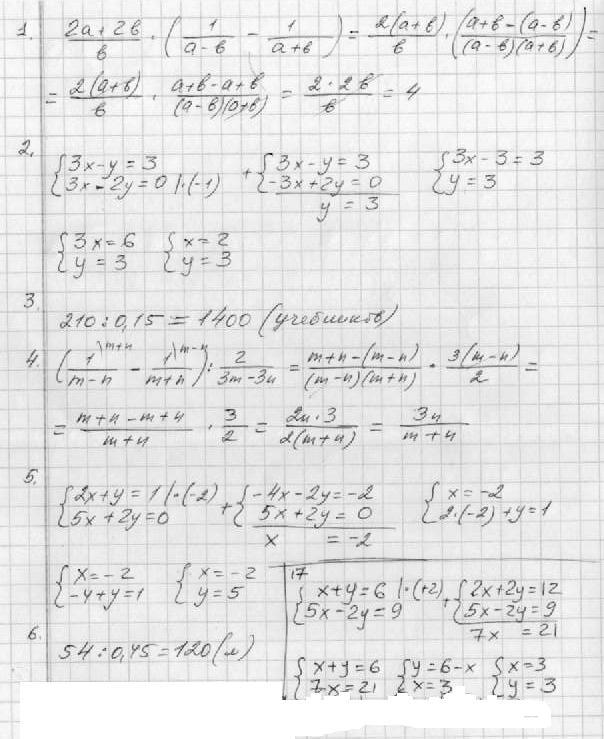 1. (2a+2b)/b · (1/(a-b) - 1/(a+b)) = 2(a+b)/b · ((a+b-(a-b))/((a-b)(a+b))) =
= 2(a+b)/b · (a+b-a+b)/((a-b)(a+b)) = 2·2b/b = 4
2. {3x-y=3 {3x-2y=0 |·(-1) + {3x-y=3 {-3x+2y=0 y=3 {3x-3=3 {y=3
{3x=6 {y=3 {x=2 {y=3
3. 210:0,15=1400 (учебников)
4. (1\m+n/(m-n) - 1\m-n/(m+n)) : 2/(3m-3n) = (m+n-(m-n))/((m-n)(m+n)) · 3(m-n)/2 =
= (m+n-m+n)/(m+n) · 3/2 = 2n·3/(2(m+n)) = 3n/(m+n)
5. {2x+y=1 |·(-2) {5x+2y=0 + {-4x-2y=-2 {5x+2y=0 x=-2 {x=-2 {2·(-2)+y=1
{x=-2 {-4+y=1 {x=-2 {y=5
6. 54:0,45=120 (л)
17 {x+y=6 |·(+2) {5x-2y=9 + {2x+2y=12 {5x-2y=9 7x=21
{x+y=6 {7x=21 {y=6-x {x=3 {x=3 {y=3